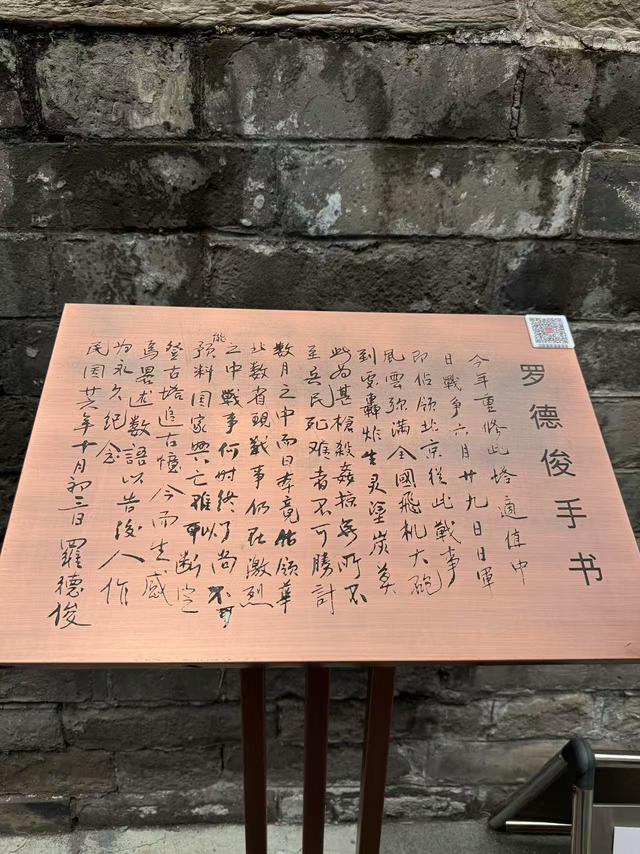 罗德俊手书
今年重修此塔適值中
日戰争六月廿九日日軍
即佔領北京從此戰事
風雲弥满全國飛机大砲
到處轟炸生灵塗炭莫
此为甚槍殺姦掠無所不
至兵民死难者不可勝計
数月之中而日本竟佔領華
北数省現戰事仍在激烈
之中戰事何时終了尚不可
能预料国家興亡难以断定
登古塔追古憶今而生感
焉畧述数語以告後人作
为永久纪念
民国廿六年十月初三日 羅德俊